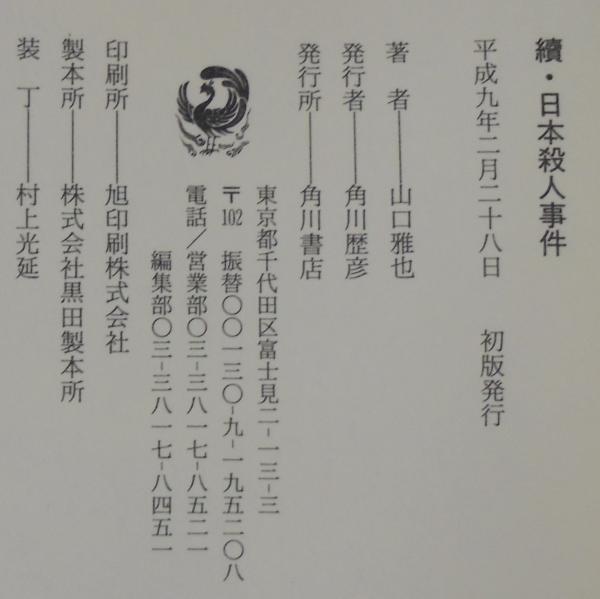 續・日本殺人事件
平成九年二月二十八日 初版発行
著 者——山口雅也
発行者——角川歴彦
発行所——角川書店
東京都千代田区富士見二-一三-三
〒102 振替〇〇一三〇-九-一九五二〇八
電話／営業部〇三-三八一七-八五二一
編集部〇三-三八一七-八四五一
印刷所——旭印刷株式会社
製本所——株式会社黒田製本所
装 丁——村上光延